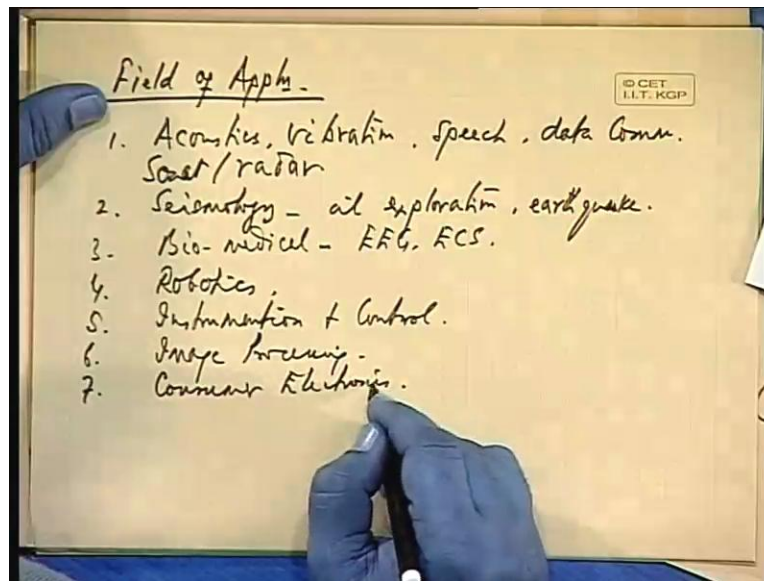 Field of Appln.
© CET
I.I.T. KGP
1. Acoustics, Vibration, Speech, data Comm.
Sonar/radar
2. Seismology - oil exploration, earthquake.
3. Bio-medical - EEG, ECG.
4. Robotics,
5. Instrumention + Control.
6. Image Processing.
7. Consumer Electronics.